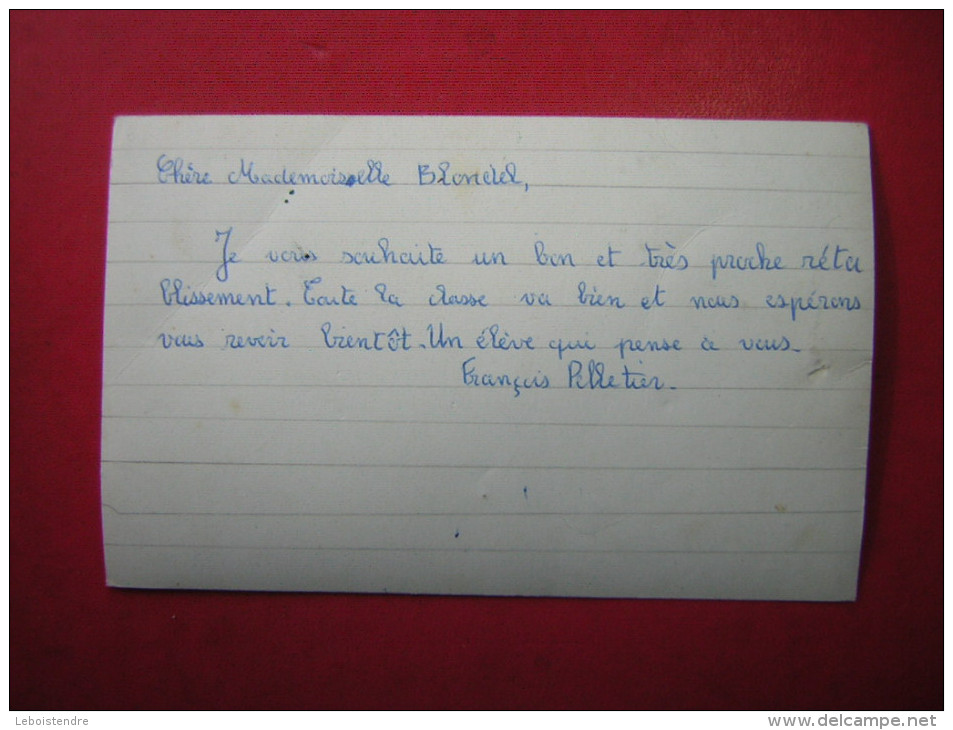 Chère Mademoiselle Blondel,
Je vous souhaite un bon et très proche réta
blissement. Toute la classe va bien et nous espérons
vous revoir bientôt. Un élève qui pense à vous.
François Pelletier.
Leboistendre
www.delcampe.net